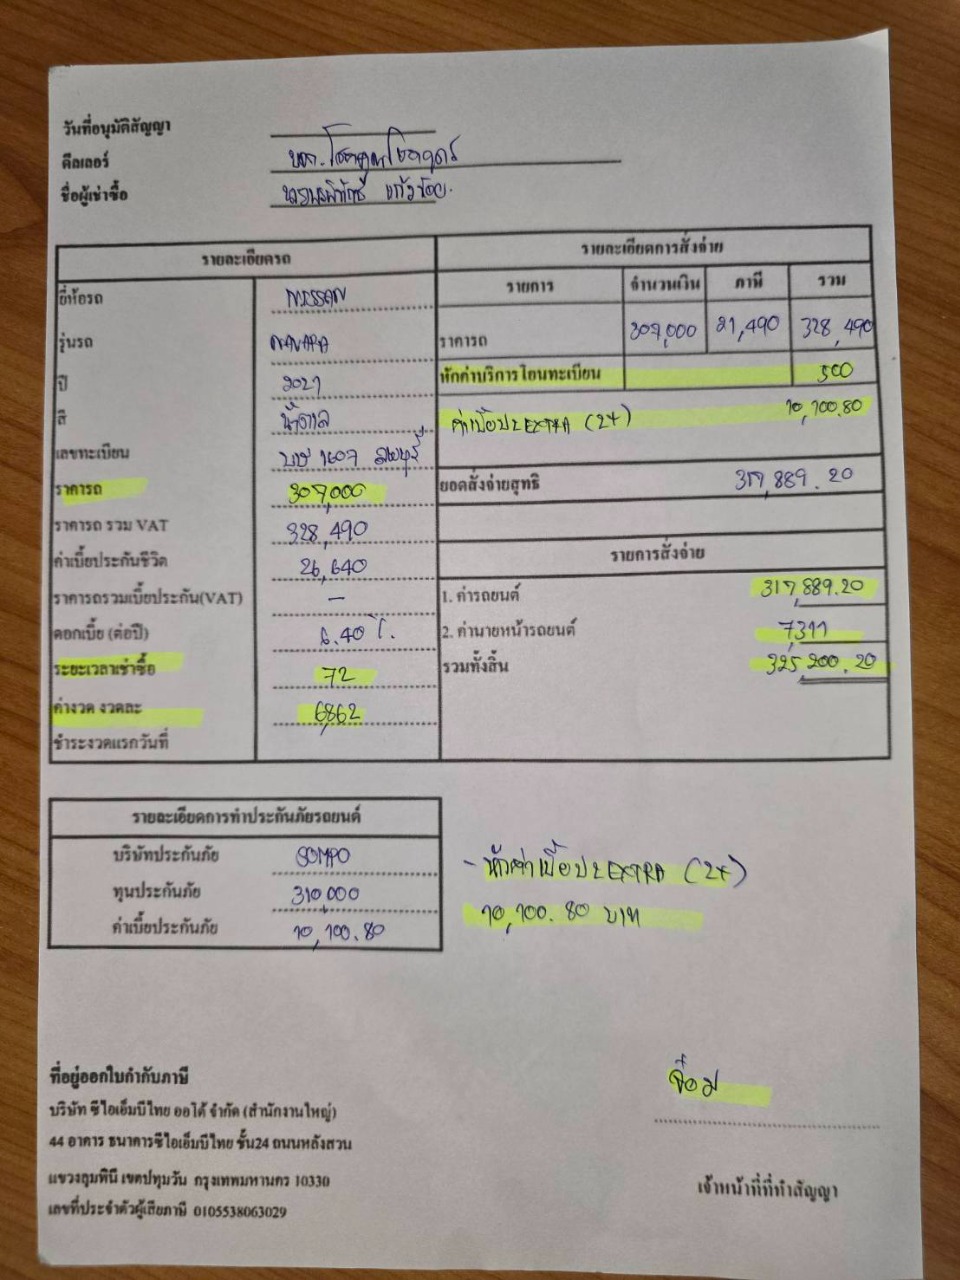 วันที่อนุมัติสัญญา
ดีลเลอร์ บจก.
ชื่อผู้เช่าซื้อ แก้วน้อย
รายละเอียดรถ
ยี่ห้อรถ NISSAN
รุ่นรถ NAVARA
ปี 2021
สี น้ำตาล
เลขทะเบียน 1607 ลพบุรี
ราคารถ 307,000
ราคารถ รวม VAT 328,490
ค่าเบี้ยประกันชีวิต 26,640
ราคารถรวมเบี้ยประกัน(VAT) -
ดอกเบี้ย (ต่อปี) 6.40 %.
ระยะเวลาเช่าซื้อ 72
ค่างวด งวดละ 6,862
ชำระงวดแรกวันที่
รายละเอียดการสั่งจ่าย
รายการ จำนวนเงิน ภาษี รวม
ราคารถ 307,000 21,490 328,490
หักค่าบริการโอนทะเบียน 500
ค่าเบี้ยป.2 EXTRA (2+) 10,100.80
ยอดสั่งจ่ายสุทธิ 317,889.20
รายการสั่งจ่าย
1. ค่ารถยนต์ 317,889.20
2. ค่านายหน้ารถยนต์ 7,311
รวมทั้งสิ้น 325,200.20
รายละเอียดการทำประกันภัยรถยนต์
บริษัทประกันภัย SOMPO
ทุนประกันภัย 310,000
ค่าเบี้ยประกันภัย 10,100.80
- หักค่าเบี้ยป.2 EXTRA (2+)
10,100.80 บาท
ที่อยู่ออกใบกำกับภาษี
บริษัท ซีไอเอ็มบีไทย ออโต้ จำกัด (สำนักงานใหญ่)
44 อาคาร ธนาคารซีไอเอ็มบีไทย ชั้น24 ถนนหลังสวน
แขวงลุมพินี เขตปทุมวัน กรุงเทพมหานคร 10330
เลขที่ประจำตัวผู้เสียภาษี 0105538063029
เจ้าหน้าที่ที่ทำสัญญา